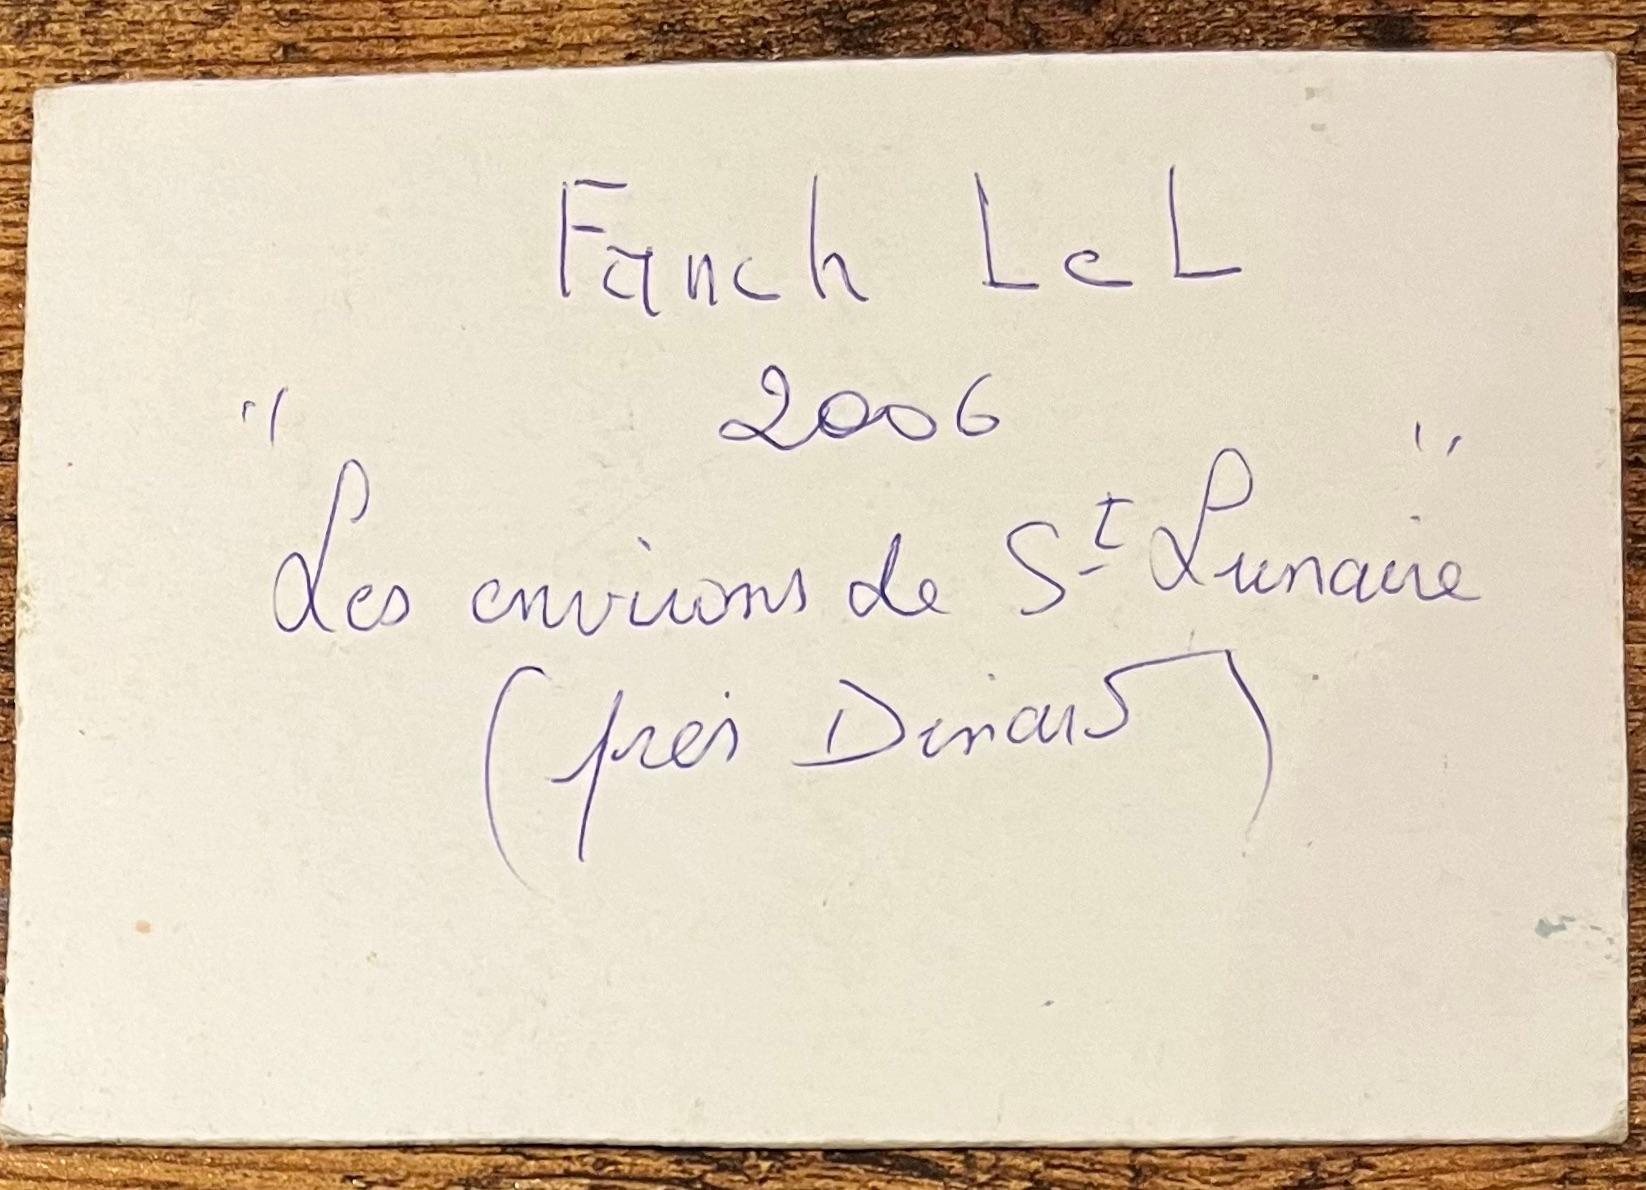 Fanch LeL
2006
"Les environs de St Lunaire"
(près Dinard)